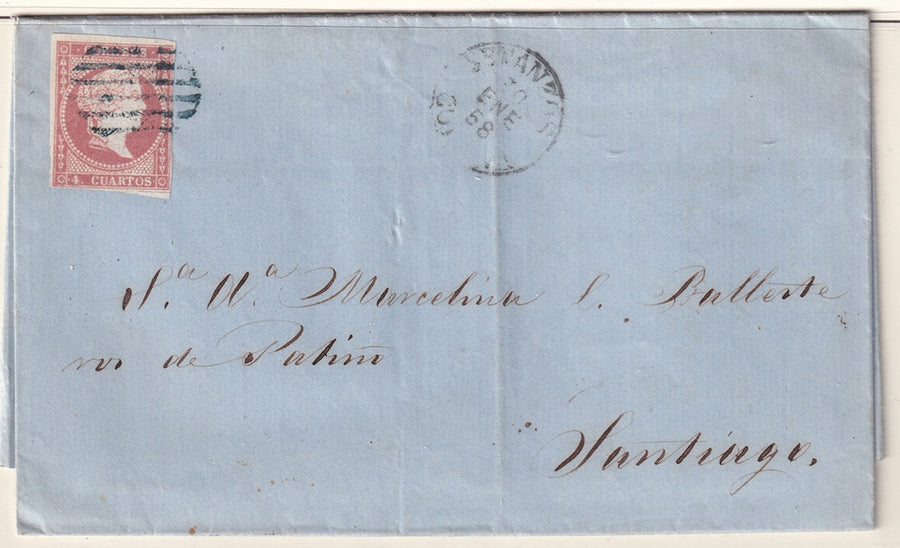 4. CUARTOS
ENE
58
Sª. Dª. Marcelina C. Balleste
ros de Patiño
Santiago.